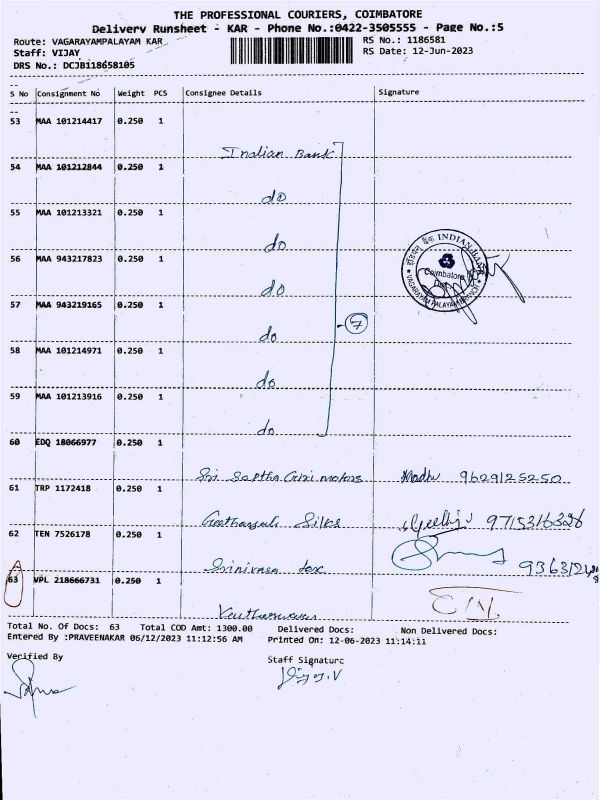 THE PROFESSIONAL COURIERS, COIMBATORE
Delivery Runsheet - KAR - Phone No.:0422-3505555 - Page No.:5
Route: VAGARAYAMPALAYAM KAR
RS No.: 1186581
Staff: VIJAY
RS Date: 12-Jun-2023
DRS No.: DCJB118658105
S No Consignment No Weight PCS Consignee Details Signature
53 MAA 101214417 0.250 1
Indian Bank
54 MAA 101212844 0.250 1
do
55 MAA 101213321 0.250 1
do
56 MAA 943217823 0.250 1
do
INDIAN BANK
Coimbatore
VAGARAYAMPALAYAM BRANCH
57 MAA 943219165 0.250 1
do
7
58 MAA 101214971 0.250 1
do
59 MAA 101213916 0.250 1
do
60 EDQ 18066977 0.250 1
Sri Saptha Giri motors Madhu 9629125250
61 TRP 1172418 0.250 1
Geethanjali Silks Geetha 9715316326
62 TEN 7526178 0.250 1
Srinivasa tex
63 VPL 218666731 0.250 1
Total No. Of Docs: 63 Total COD Amt: 1300.00 Delivered Docs: Non Delivered Docs:
Entered By :PRAVEENAKAR 06/12/2023 11:12:56 AM Printed On: 12-06-2023 11:14:11
Verified By
Staff Signature